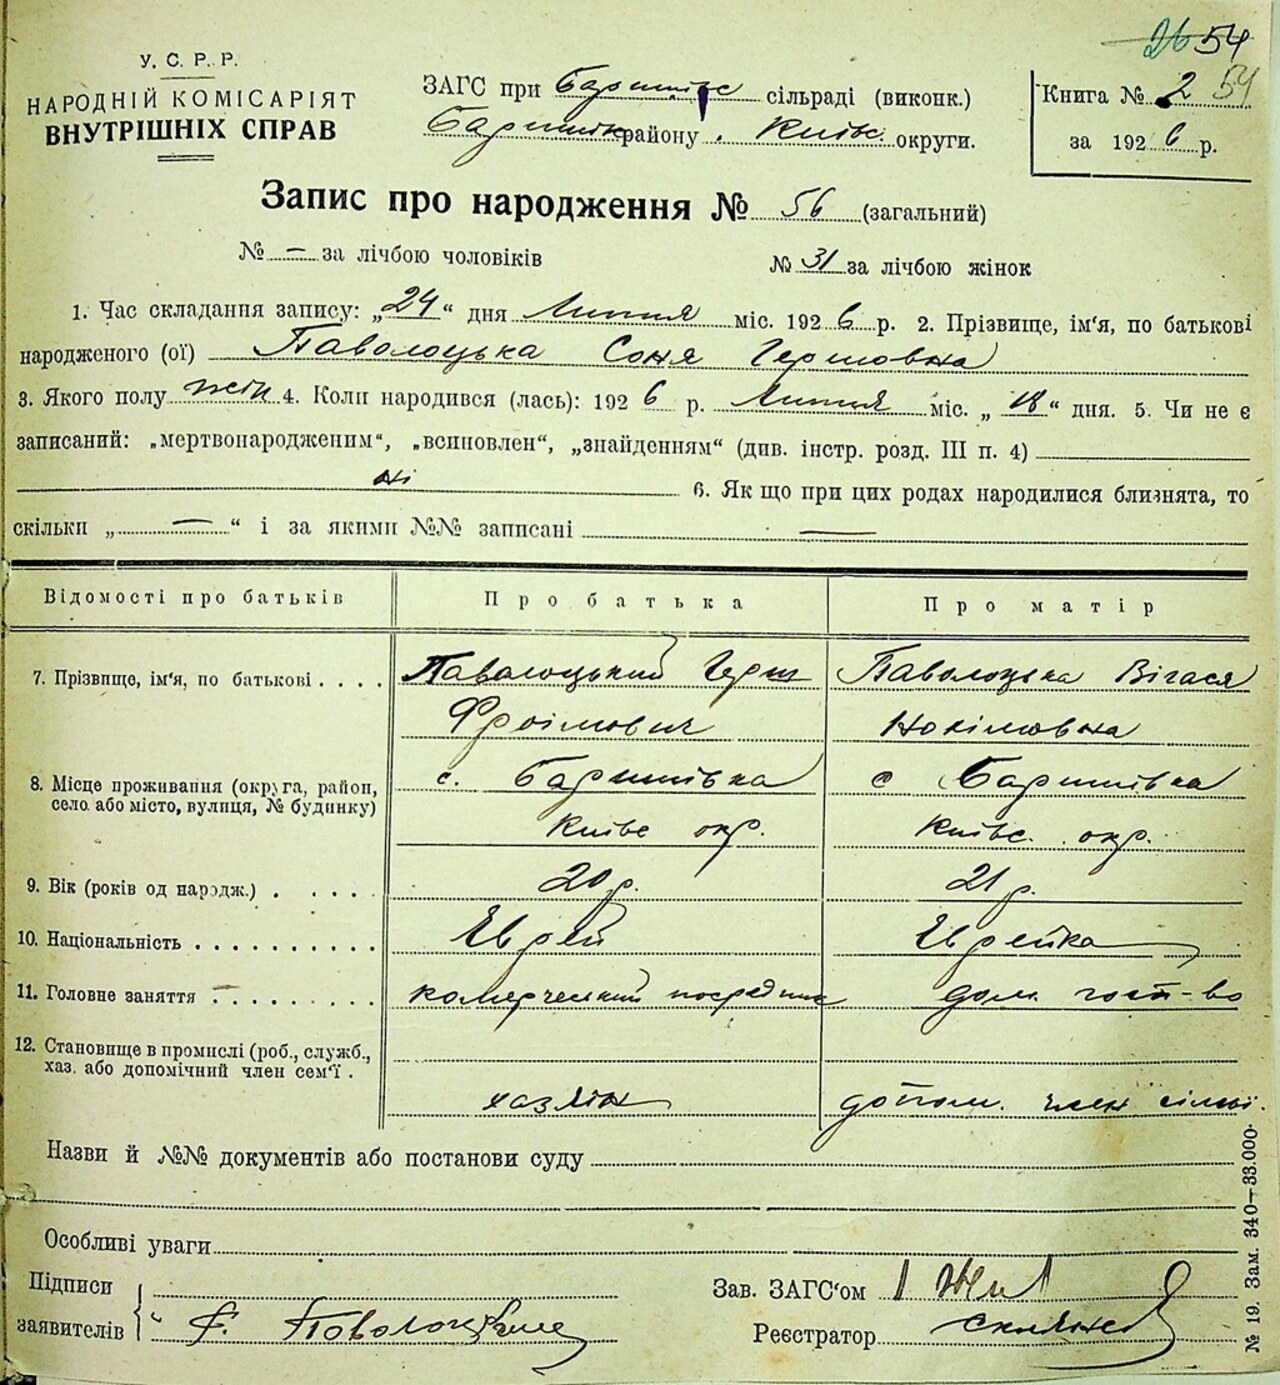 26 54
У. С. Р. Р.
НАРОДНІЙ КОМІСАРІЯТ
ВНУТРІШНІХ СПРАВ
ЗАГС при Баришівс сільраді (виконк.)
Баришівс району Київс. округи.
Книга № 2 54
за 1926 р.
Запис про народження № 56 (загальний)
№ — за лічбою чоловіків
№ 31 за лічбою жінок
1. Час складання запису: „24“ дня Липня міс. 1926 р. 2. Прізвище, ім‘я, по батькові
народженого (ої) Паволоцька Соня Гершовна
3. Якого полу жін 4. Коли народився (лась): 1926 р. Липня міс. „18“ дня. 5. Чи не є
записаний: „мертвонародженим“, „всиновлен“, „знайденням“ (див. інстр. розд. III п. 4)
ні 6. Як що при цих родах народилися близнята, то
скільки „ — “ і за якими №№ записані —
Відомості про батьків Про батька Про матір
7. Прізвище, ім‘я, по батькові . . . . Паволоцький Герш Паволоцька Вігася
Фроімович Нохімовна
8. Місце проживання (округа, район, с. Баришівка с Баришівка
село або місто, вулиця, № будинку)
Київс окр. Київс. окр.
9. Вік (років од народж.) . . . . . 20 р. 21 р.
10. Національність . . . . . . . . . . Єврей Єврейка
11. Головне заняття . . . . . . . . . комерческий посредник дом. госп-во
12. Становище в промислі (роб., служб.,
хаз. або допомічний член сем‘ї .
хазяїн допом. член сімьі.
Назви й №№ документів або постанови суду
Особливі уваги
Підписи
заявителів Г. Поволоцкий
Зав. ЗАГС‘ом
Реєстратор
№ 19. Зам. 340—33.000.